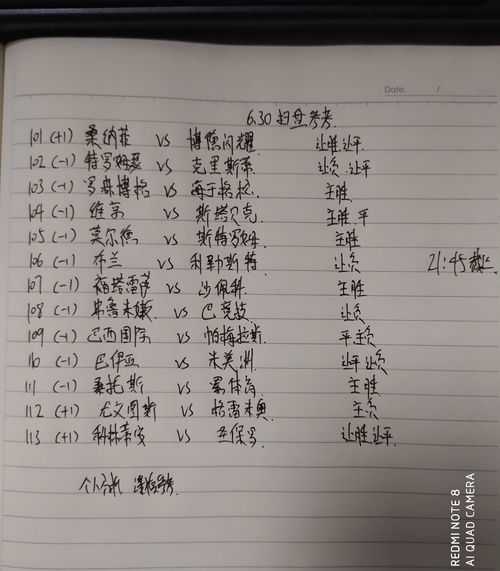 Date. /
6.30 扫盘参考
101 (+1) 桑纳菲 VS 博德闪耀 让胜.让平
102 (-1) 特罗姆瑟 VS 克里斯蒂 让负.让平
103 (-1) 罗森博格 VS 海于格松 主胜
104 (-1) 维京 VS 斯塔贝克 主胜.平
105 (-1) 莫尔德 VS 斯特罗姆 主胜
106 (-1) 布兰 VS 利勒斯特 让负 21:45截止
107 (-1) 福塔雷萨 VS 沙佩科 主胜
108 (-1) 弗鲁米嫩 VS 巴竞技 让负
109 (-1) 巴西国际 VS 帕梅拉斯 平.主负
110 (-1) 巴伊亚 VS 米美洲 让平 让负
111 (-1) 桑托斯 VS 累体育 主胜
112 (+1) 尤文图斯 VS 格雷米奥 主负
113 (+1) 科林蒂安 VS 圣保罗 让胜.让平
个人分析 谨慎参考
REDMI NOTE 8
AI QUAD CAMERA